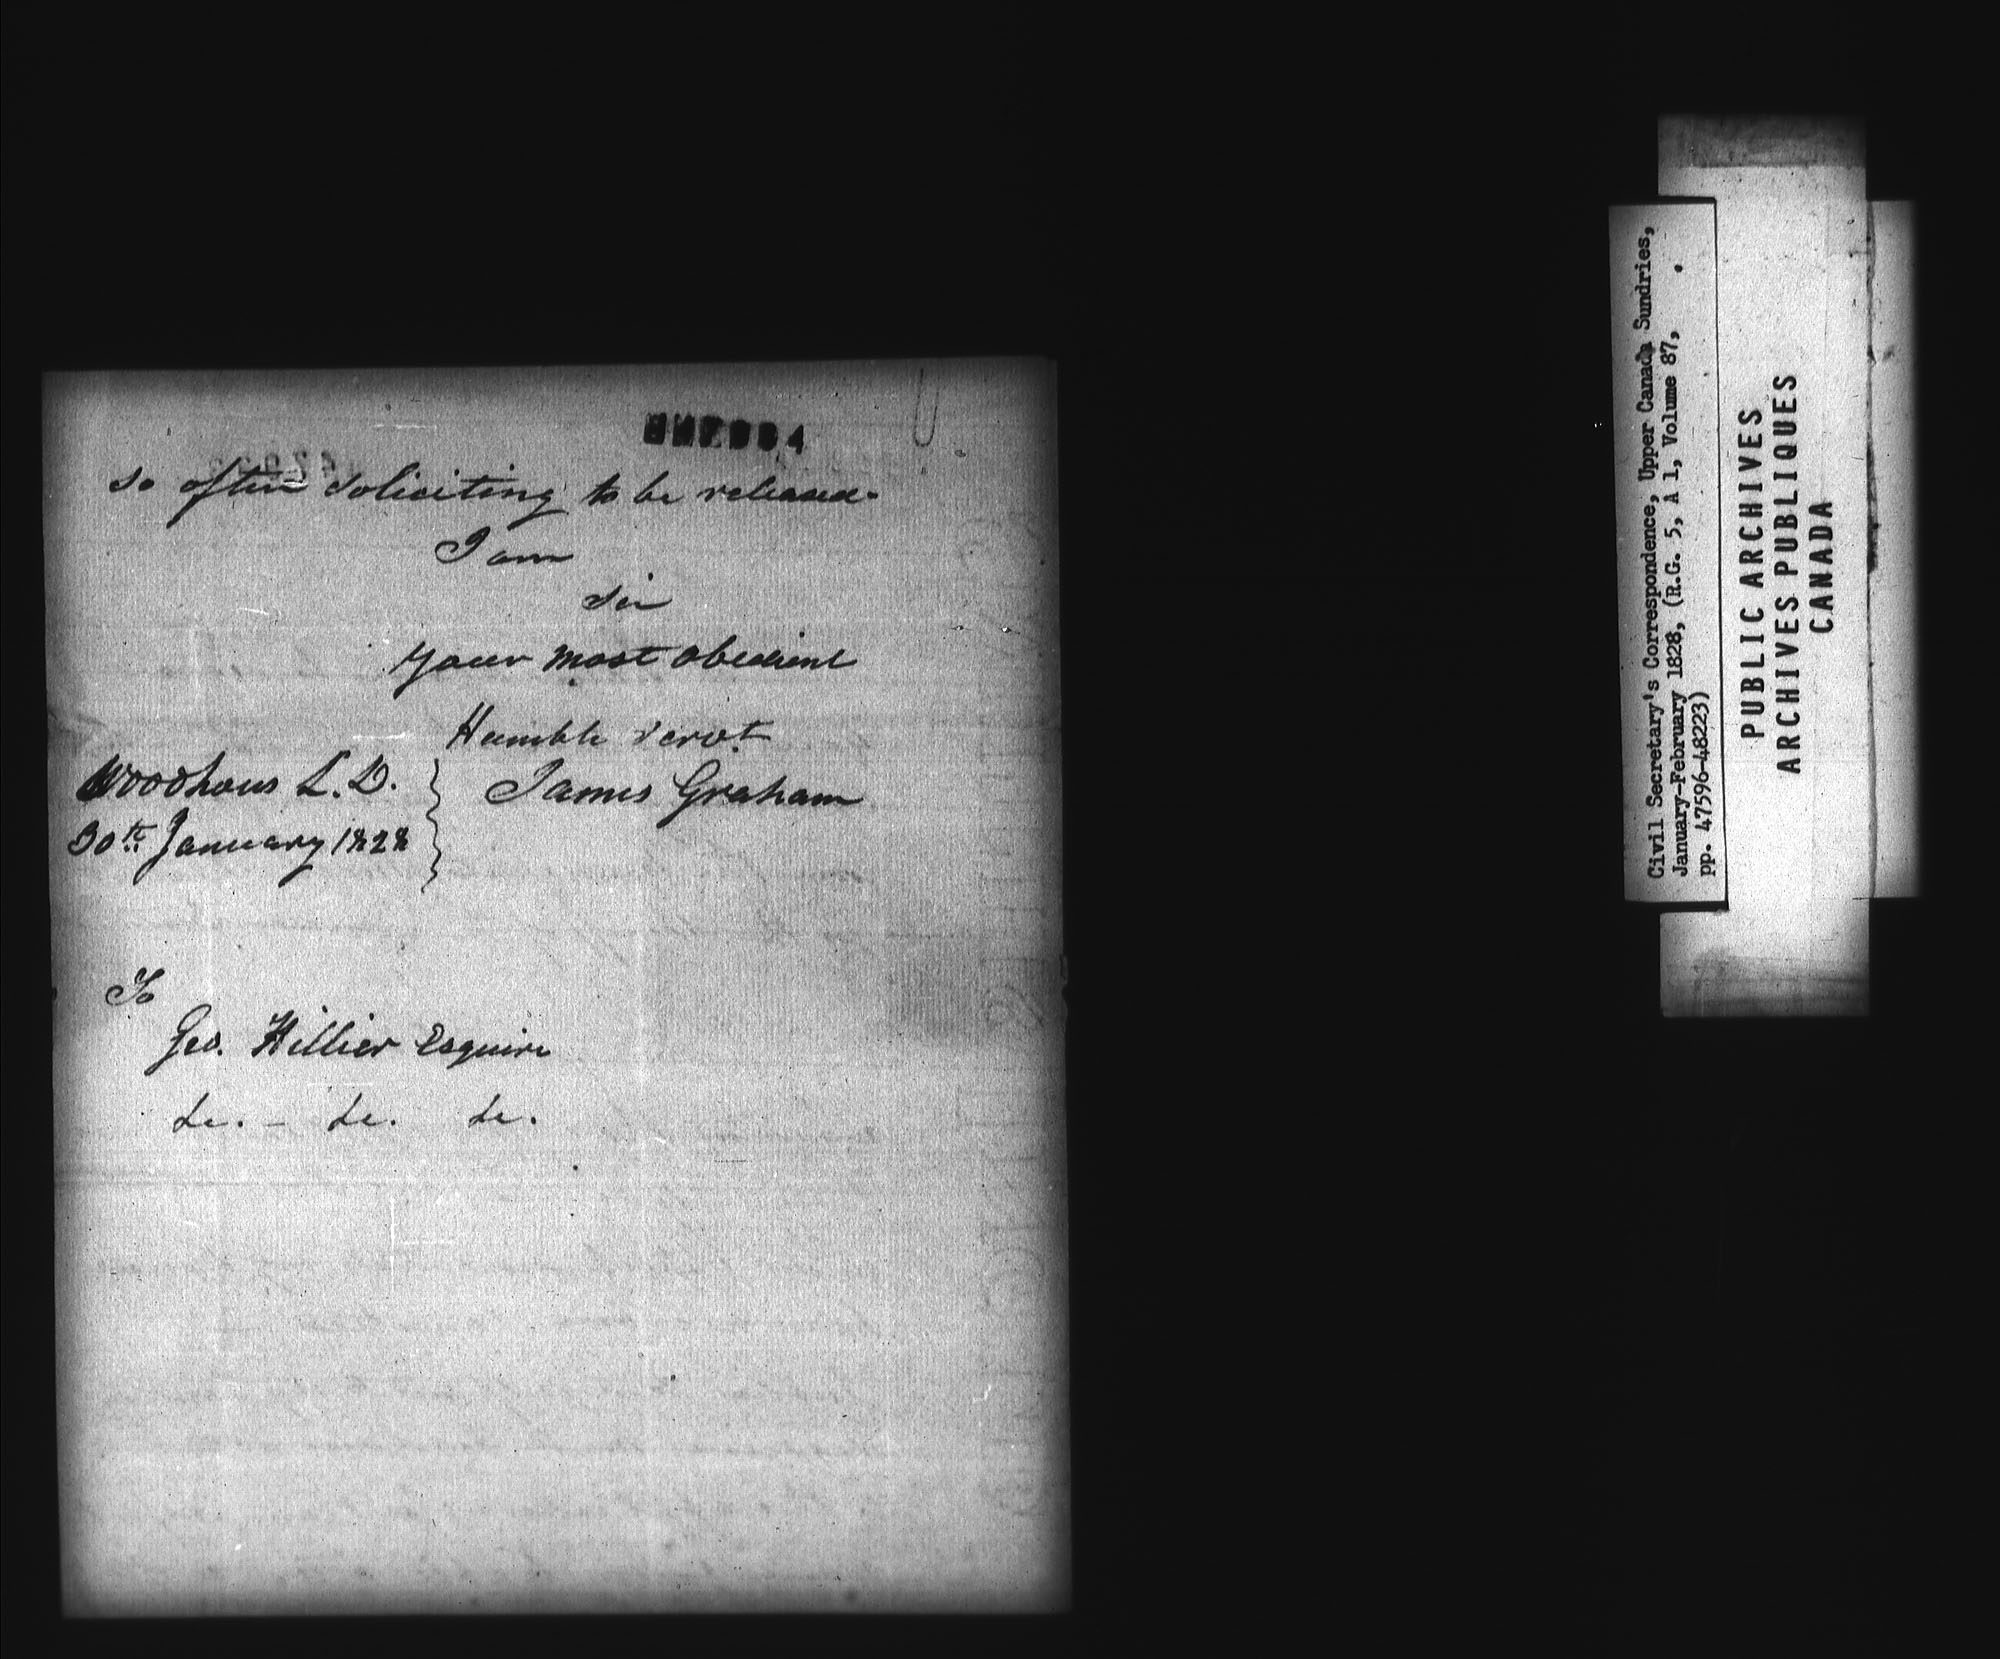 so often soliciting to be released.
I am
Sir
Your most obedient
Humble Servt.
James Graham
Woodhous L.D.
30th. January 1828
To
Geo. Hillier Esquire
&c. - &c. &c.
Civil Secretary's Correspondence, Upper Canada Sundries,
January-February 1828, (R.G. 5, A 1, Volume 87,
pp. 47596-48223)
PUBLIC ARCHIVES
ARCHIVES PUBLIQUES
CANADA